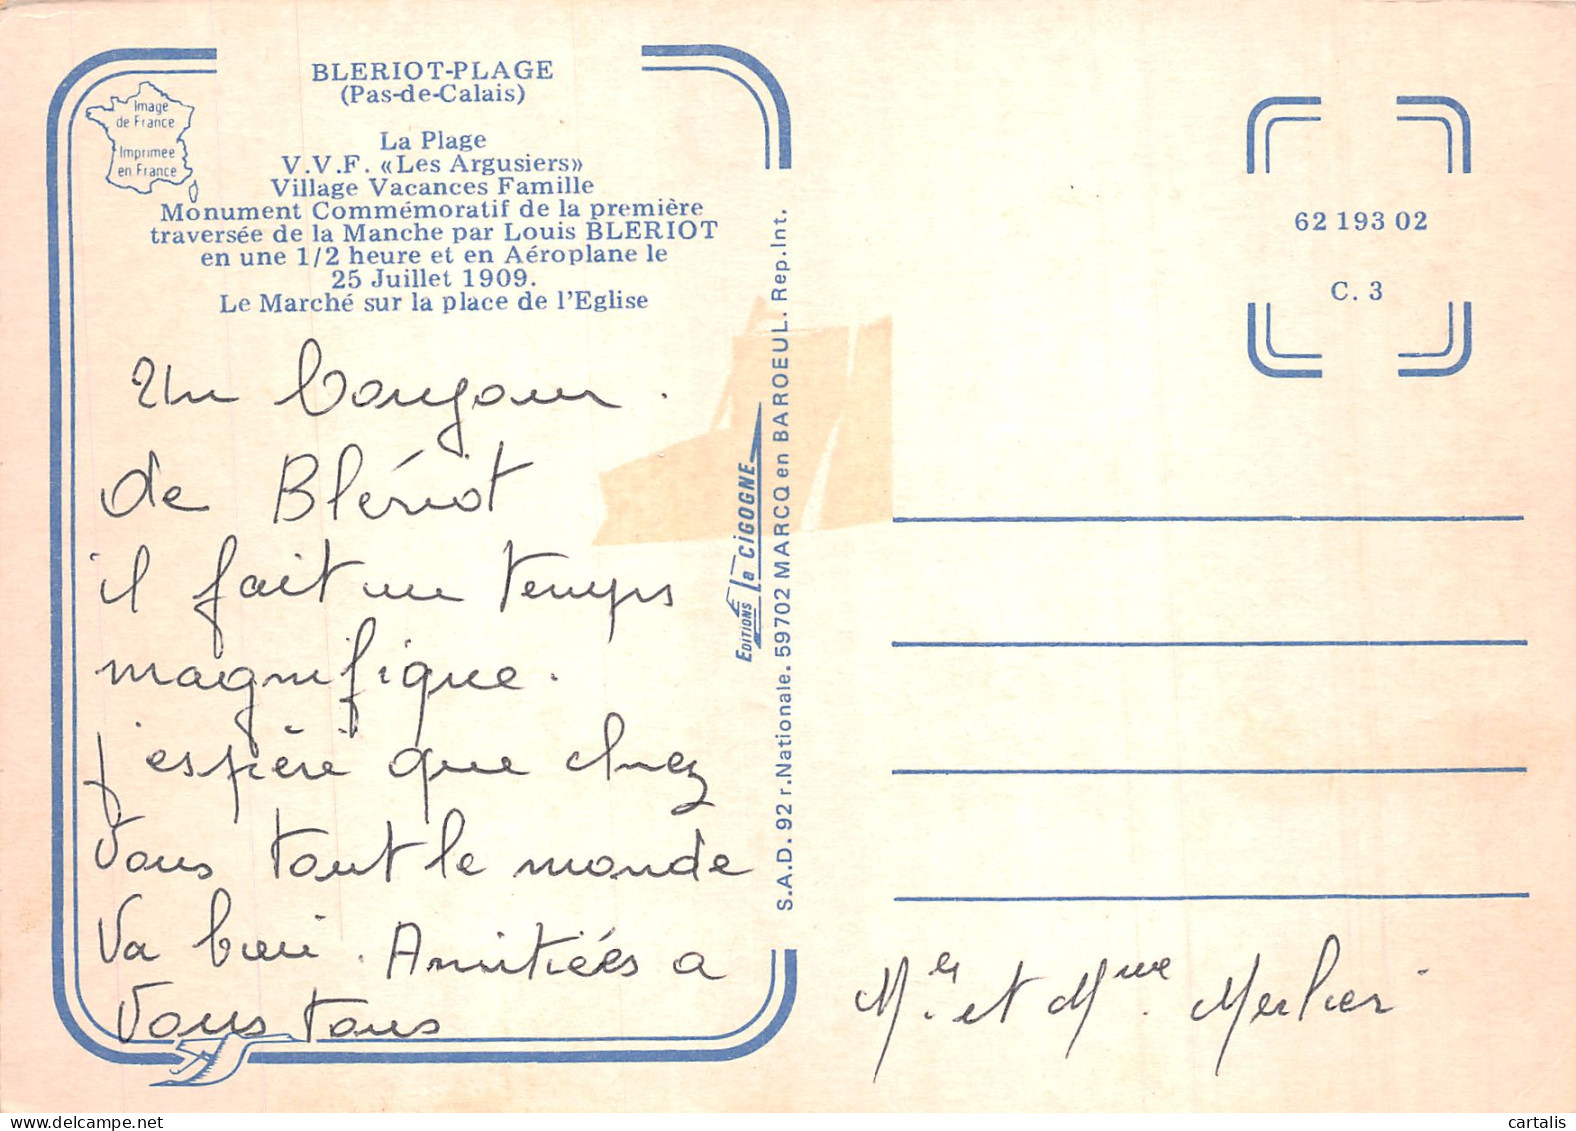 BLERIOT-PLAGE
(Pas-de-Calais)
Image
de France
Imprimée
en France
La Plage
V.V.F. «Les Argusiers»
Village Vacances Famille
Monument Commémoratif de la première
traversée de la Manche par Louis BLERIOT
en une 1/2 heure et en Aéroplane le
25 Juillet 1909.
Le Marché sur la place de l'Eglise
Un bonjour.
de Blériot
il fait un temps
magnifique.
j'espère que chez
Vous tout le monde
Va bien. Amitiées a
Vous tous
EDITIONS la CIGOGNE
S.A.D. 92 r. Nationale. 59702 MARCQ en BAROEUL. Rep. Int.
62 193 02
C. 3
Mer. et Mme. Merlier
cartalis